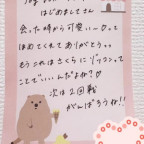 はじめまして さん
会った時から可愛いーひって
ほめてくれてありがとう。。
もうこれはさくらにゾッコンって
ことでいいんだよね?♡
次は2回戦
がんばろうね!!